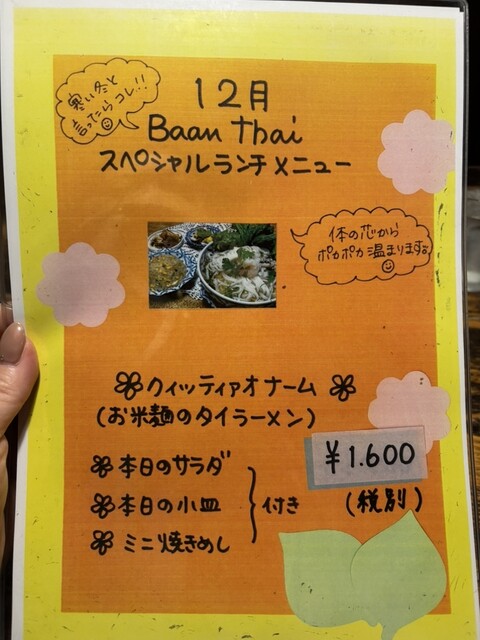 寒い冬と
言ったらコレ!!
12月
Baan Thai
スペシャルランチメニュー
体の芯から
ポカポカ温まります。
クィッティアオナーム
(お米麺のタイラーメン)
本日のサラダ
本日の小皿
ミニ焼きめし
付き
¥1.600
(税別)